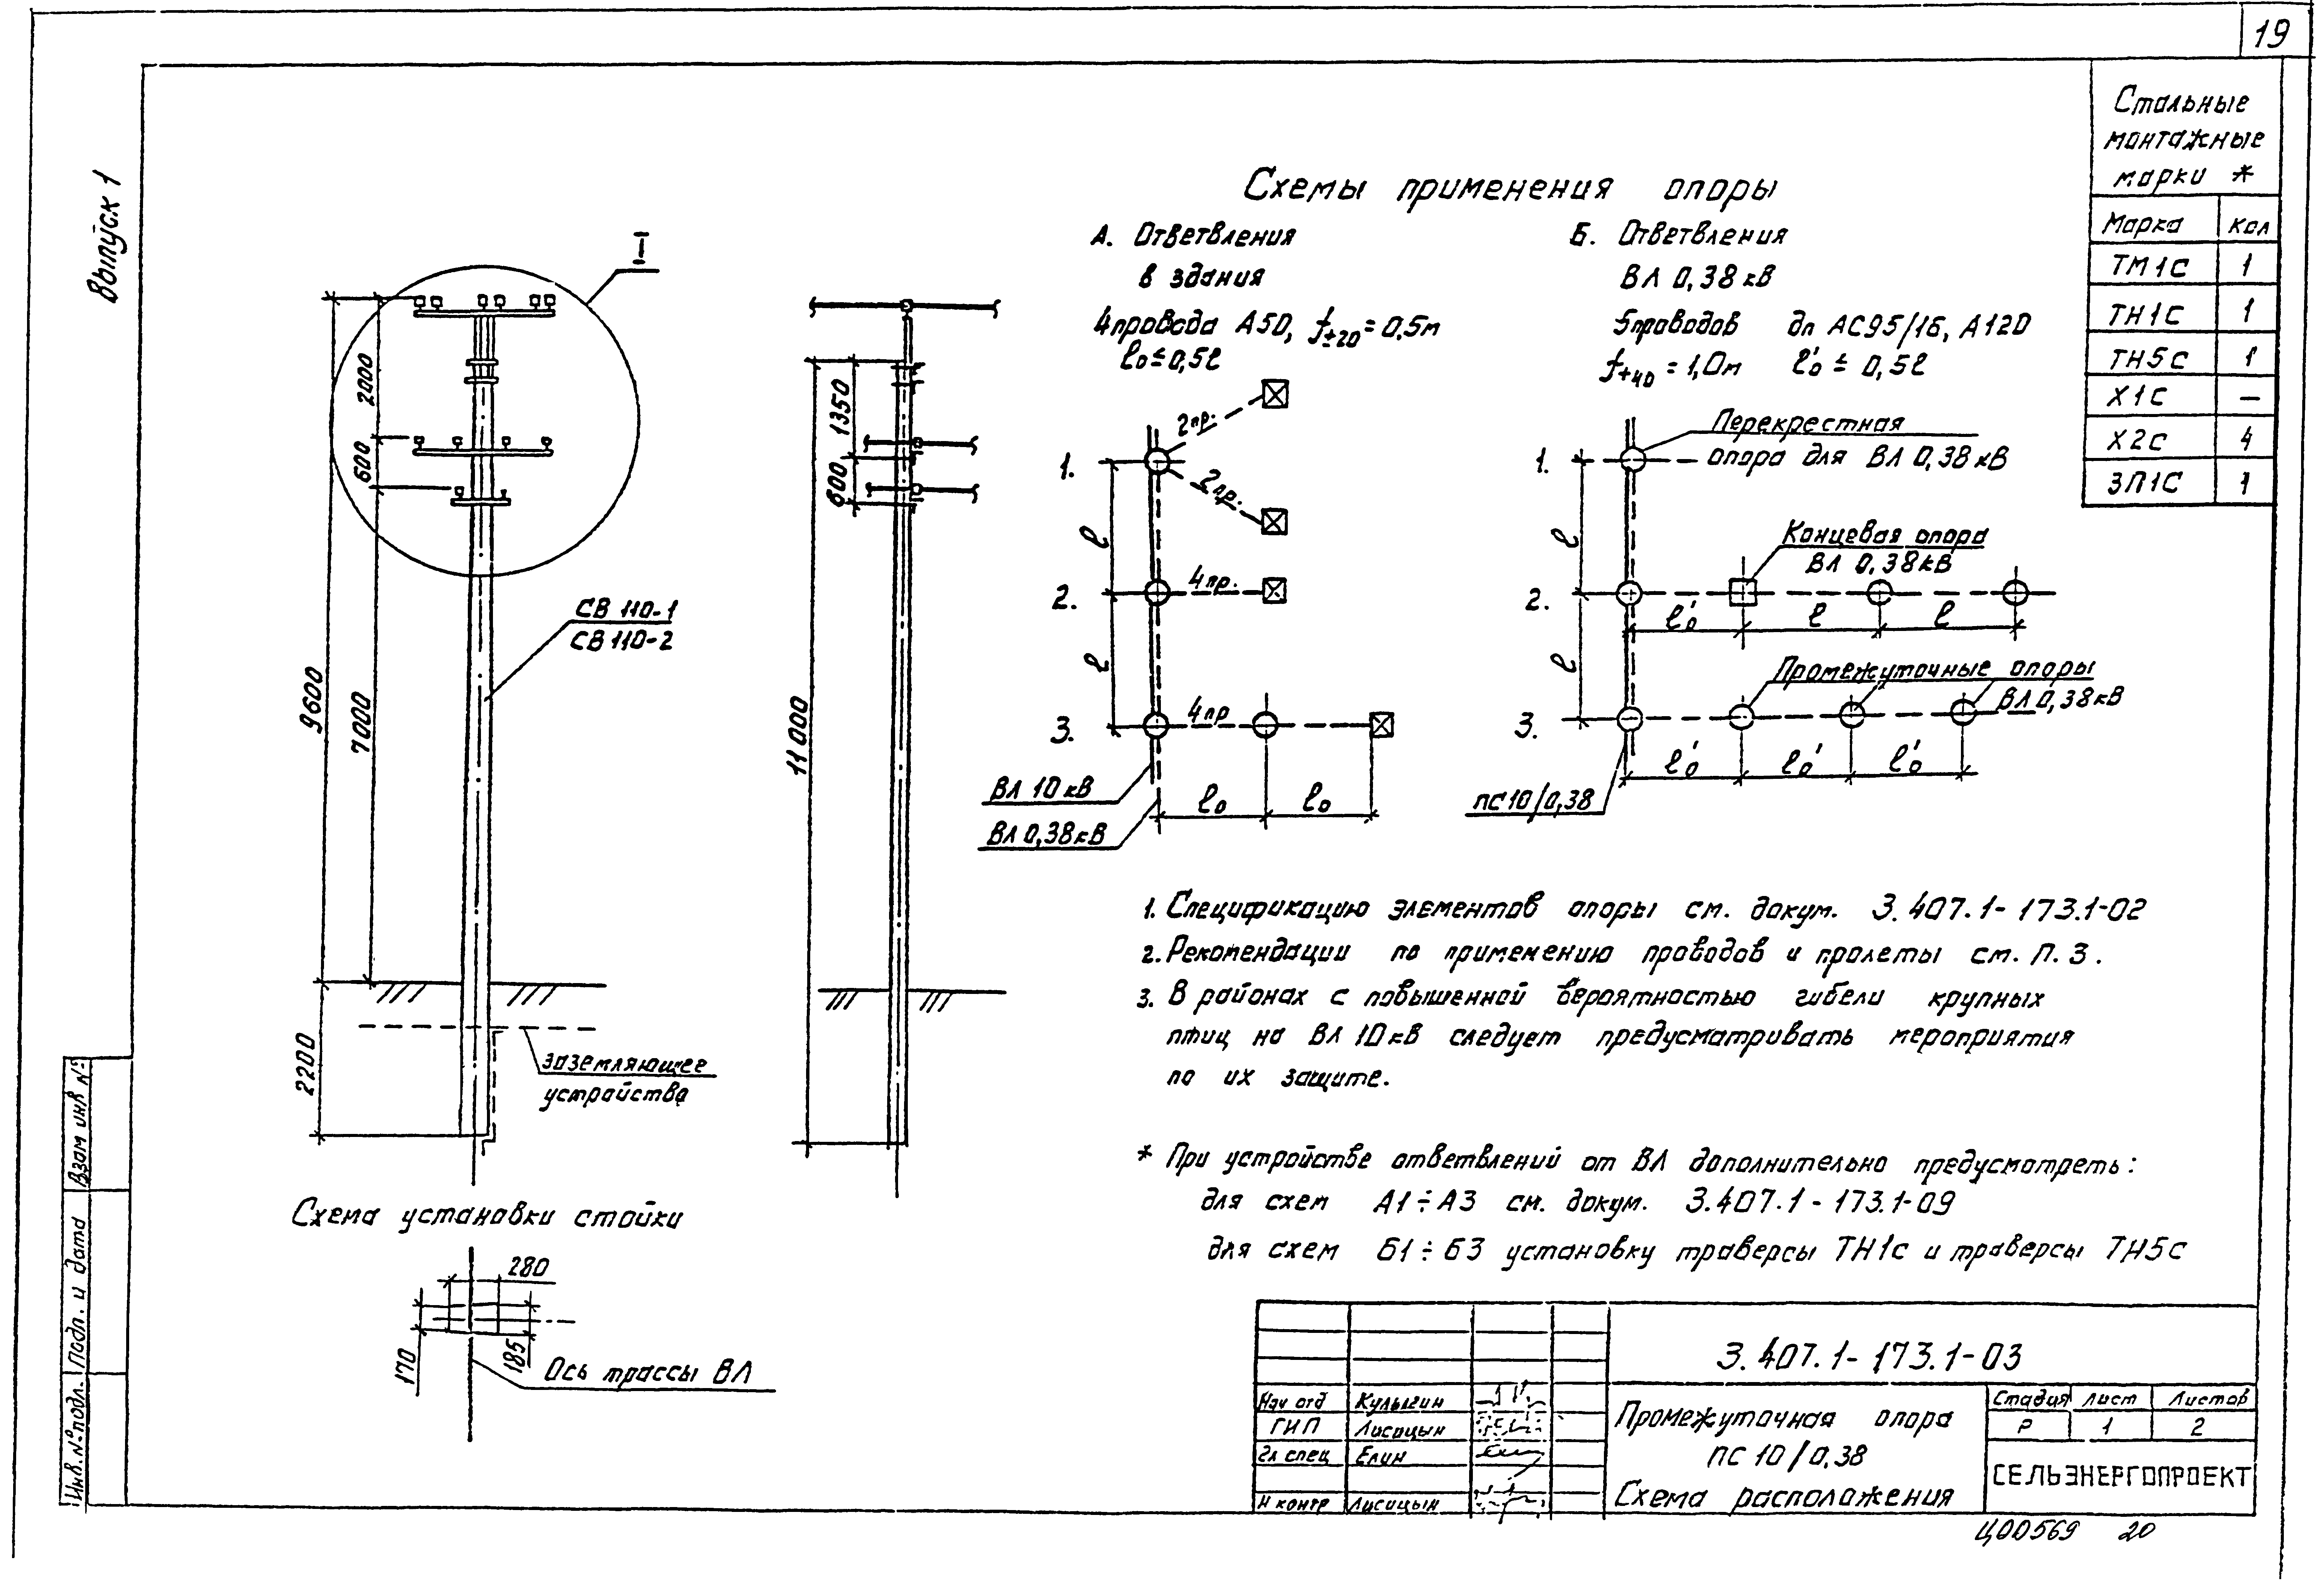 19
Выпуск 1
Стальные
монтажные
марки *
Марка Кол
ТМ1С 1
ТН1С 1
ТН5С 1
Х1С —
Х2С 4
ЗП1С 1
I
2000
600
9600
7000
2200
СВ 110-1
СВ 110-2
заземляющее
устройство
1350
600
11000
Схема установки стойки
280
170
185
Ось трассы ВЛ
Схемы применения опоры
А. Ответвления
в здания
4 провода А50, f+20 = 0,5м
l₀ ≤ 0,5l
2 пр.
2 пр.
1.
l
2.
4 пр.
l
3.
4 пр
ВЛ 10 кВ
l₀ l₀
ВЛ 0,38 кВ
Б. Ответвления
ВЛ 0,38 кВ
5 проводов до АС95/16, А120
f+40 = 1,0м l₀' ≤ 0,5l
Перекрестная
опора для ВЛ 0,38 кВ
1.
l
Концевая опора
ВЛ 0,38 кВ
2.
l₀' l l
l
Промежуточные опоры
ВЛ 0,38 кВ
3.
l₀' l₀' l₀'
ПС10/0,38
1. Спецификацию элементов опоры см. докум. 3.407.1-173.1-02
2. Рекомендации по применению проводов и пролеты см. П. 3.
3. В районах с повышенной вероятностью гибели крупных
птиц на ВЛ 10 кВ следует предусматривать мероприятия
по их защите.
* При устройстве ответвлений от ВЛ дополнительно предусмотреть:
для схем А1÷А3 см. докум. 3.407.1-173.1-09
для схем Б1÷Б3 установку траверсы ТН1с и траверсы ТН5с
3.407.1-173.1-03
Нач отд Кулыгин
ГИП Лисицын
Гл спец Елин
Н контр Лисицын
Промежуточная опора
ПС 10/0,38
Схема расположения
Стадия Лист Листов
Р 1 2
СЕЛЬЭНЕРГОПРОЕКТ
Взам инв №
Подп. и дата
Инв. № подл.
Ц00569 20